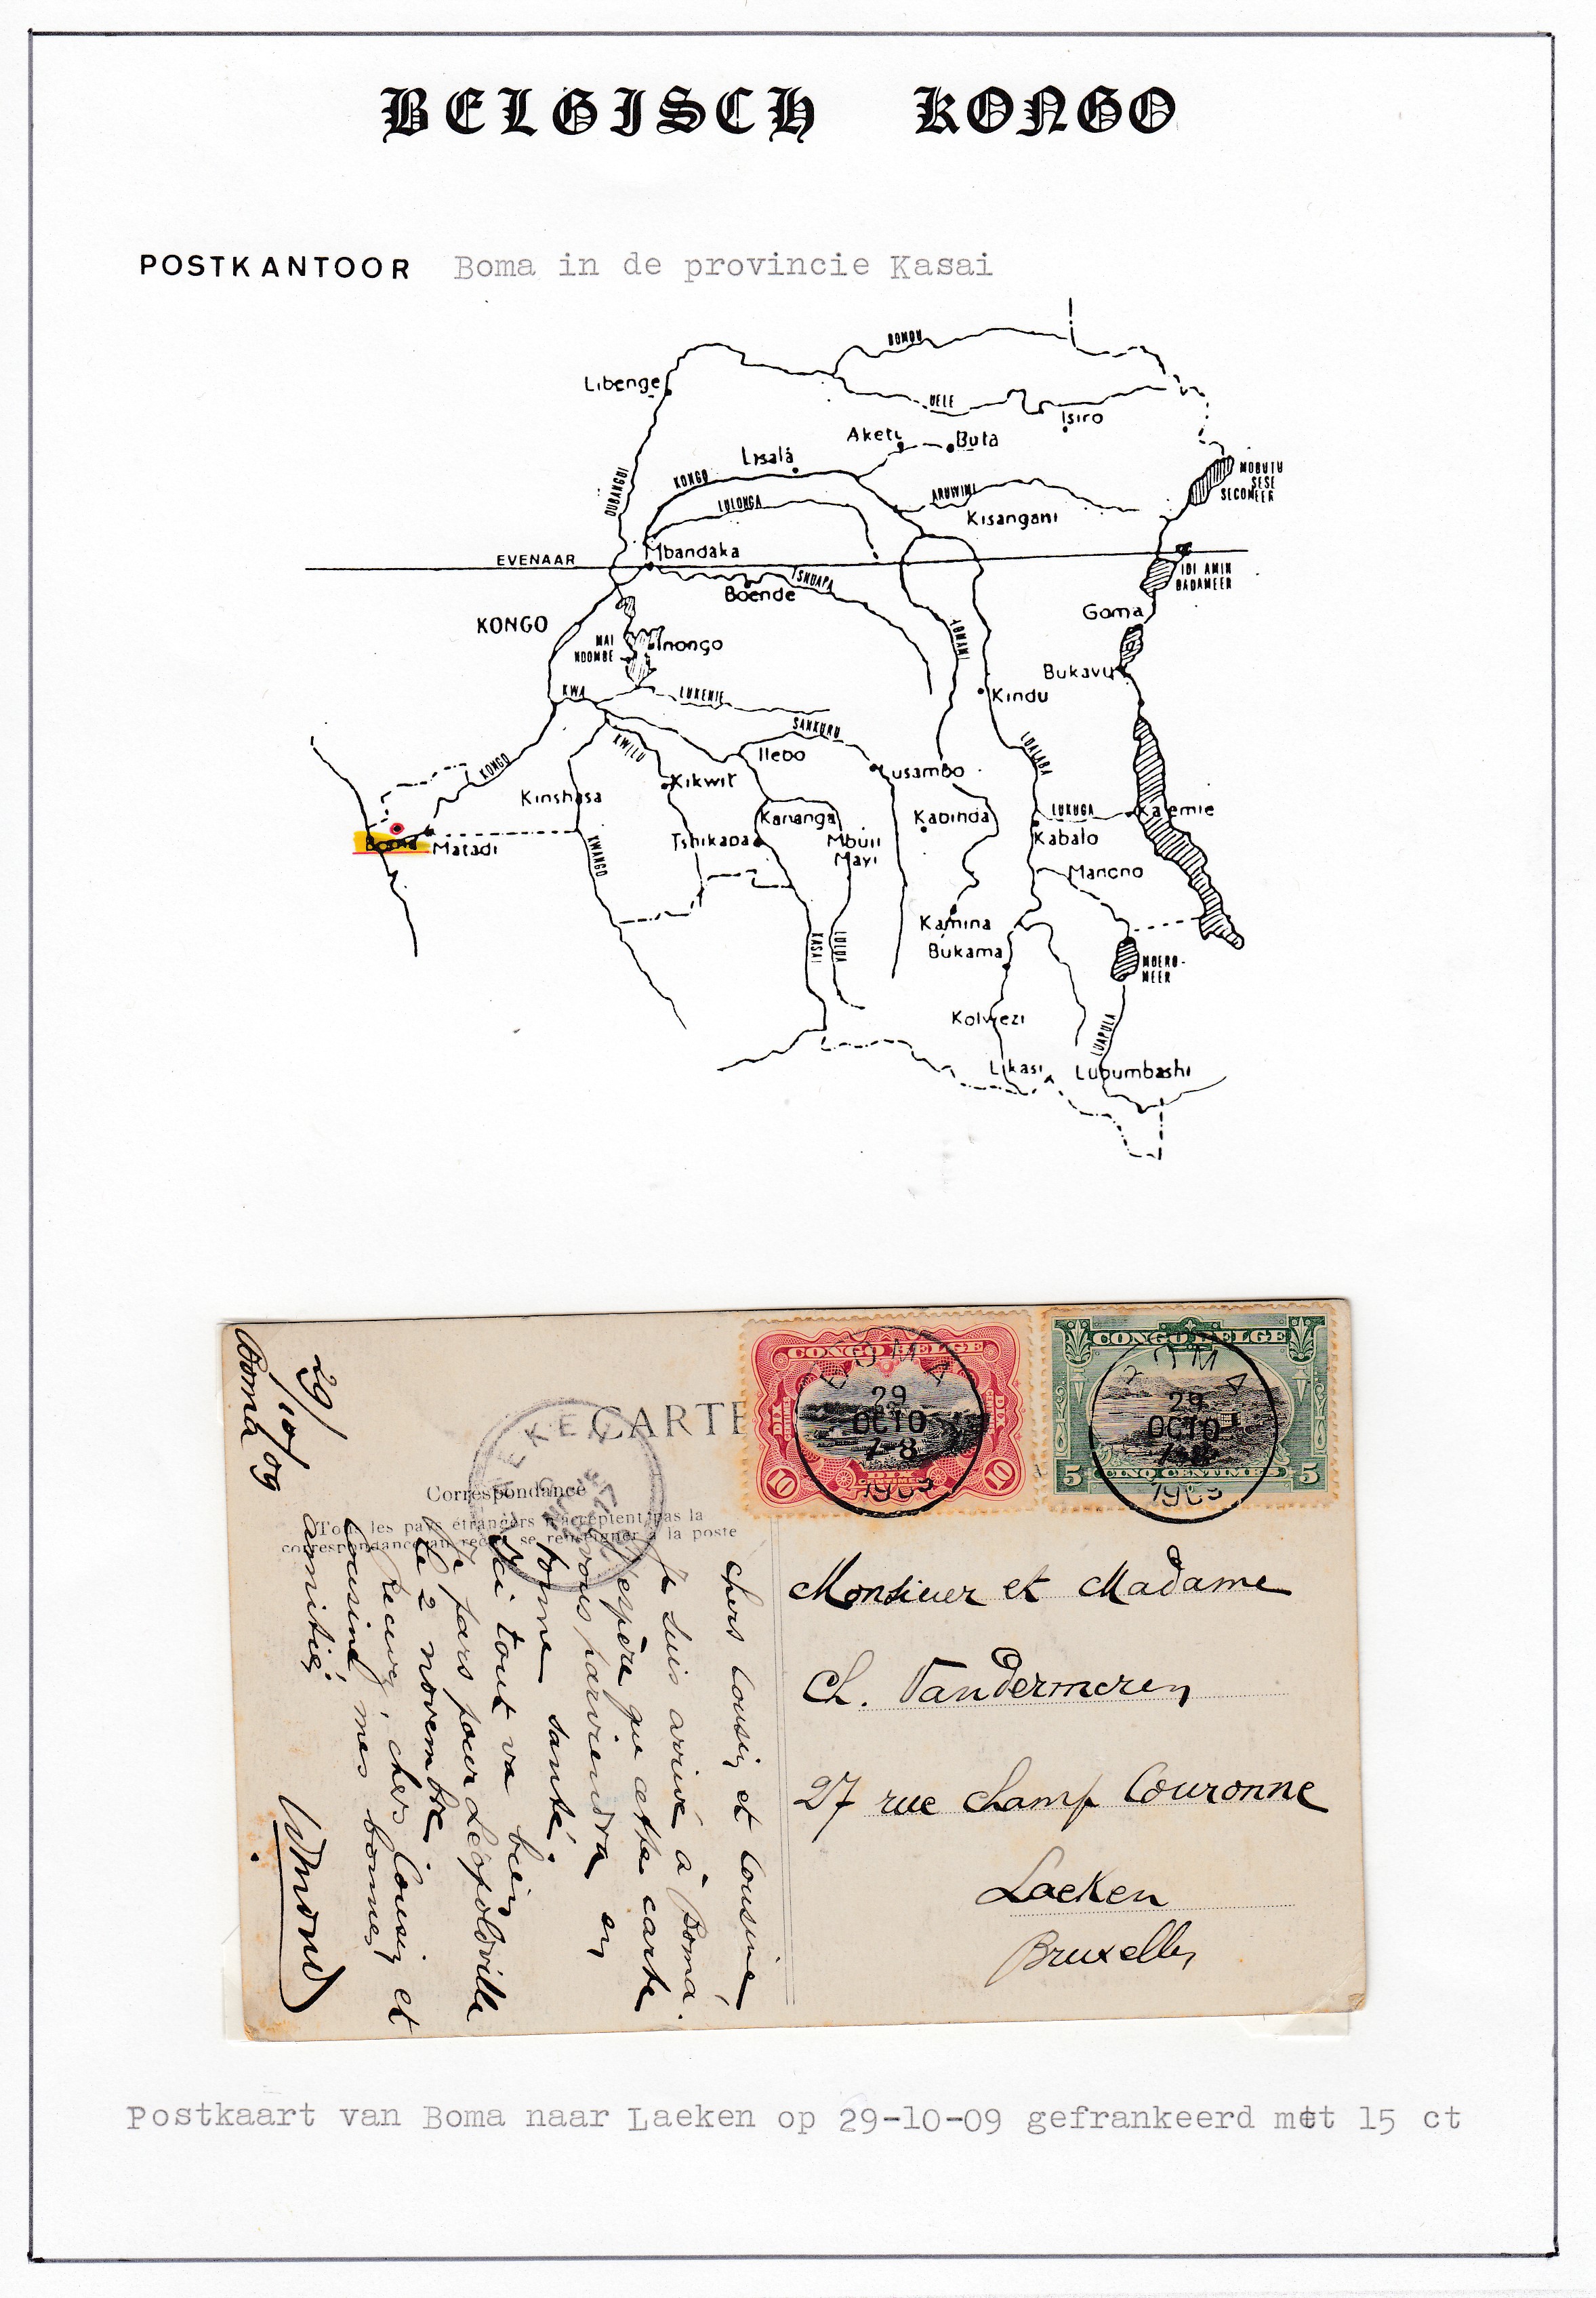 BELGISCH KONGO
POSTKANTOOR Boma in de provincie Kasai
BOMU
Libenge
UELE
Isiro
Aketi
Buta
Lisala
MOBUTU
SESE
SECOMEER
OUBANGUI
KONGO
LULONGA
ARUWIMI
Kisangani
EVENAAR
Mbandaka
TSHUAPA
Boende
IDI AMIN
DADAMEER
Goma
KONGO
MAI
NDOMBE
Inongo
LOMAMI
Bukavu
KWA
LUKENIE
Kindu
SANKURU
KWILU
Ilebo
LUALABA
KONGO
Kikwit
Lusambo
Kinshasa
Kananga
Kabinda
LUKUGA
Kalemie
Boma
Matadi
KWANGO
Tshikapa
Mbuji
Mayi
Kabalo
Manono
KASAI
LULUA
Kamina
Bukama
MOERO-
MEER
Kolwezi
LUAPULA
Likasi
Lubumbashi
CARTE
Correspondance
Tous les pays étrangers n'acceptent pas la
correspondance au recto se renseigner à la poste
LAEKEN
CONGO BELGE
DIX
CENTIMES
10
10
BOMA
29
OCTO
7-8
CONGO BELGE
5
CINQ CENTIMES
5
29
OCTO
7-8
Boma
29/10/09
Chers Cousin et Cousine,
Je suis arrivé à Boma.
J'espère que cette carte
vous parviendra en
bonne santé.
Ici tout va bien
Je pars pour Léopoldville
le 2 novembre
Recevez, chers Cousin et
Cousine mes bonnes
amitiés.
Monsieur et Madame
Ch. Vandermeren
27 rue Champ Couronne
Laeken
Bruxelles
Postkaart van Boma naar Laeken op 29-10-09 gefrankeerd met 15 ct